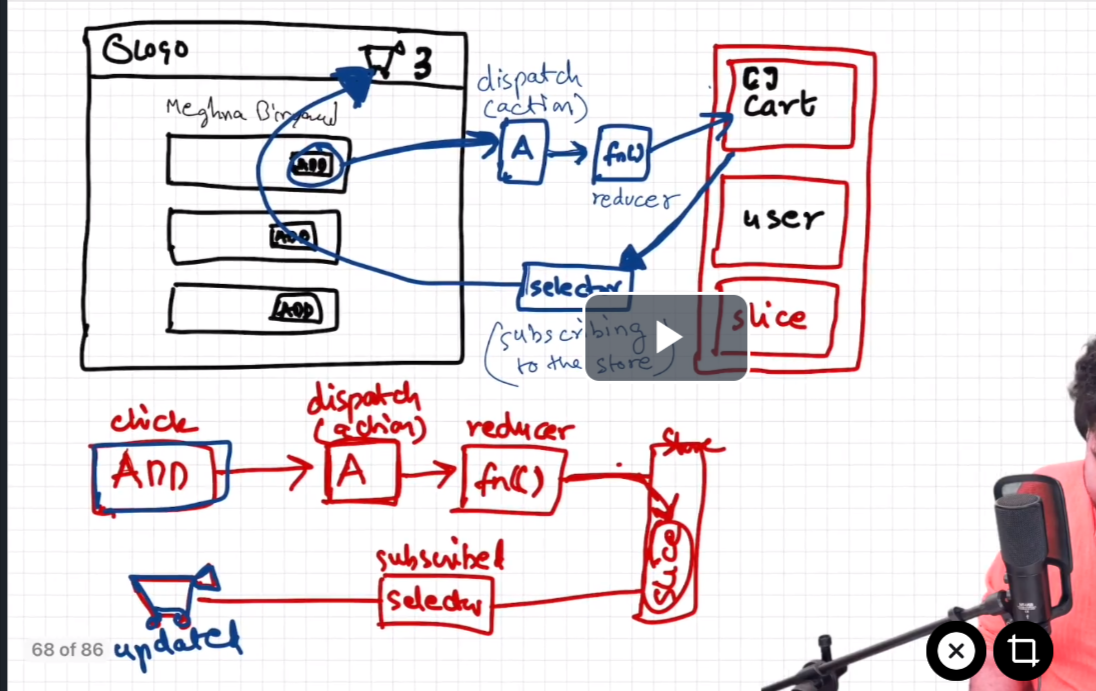 LOGO
3
Meghna
ADD
ADD
ADD
dispatch
(action)
A
fn()
reducer
[]
cart
user
slice
selector
(subscribing
to the store)
click
ADD
dispatch
(action)
A
reducer
fn()
store
slice
subscribed
selector
updated
68 of 86